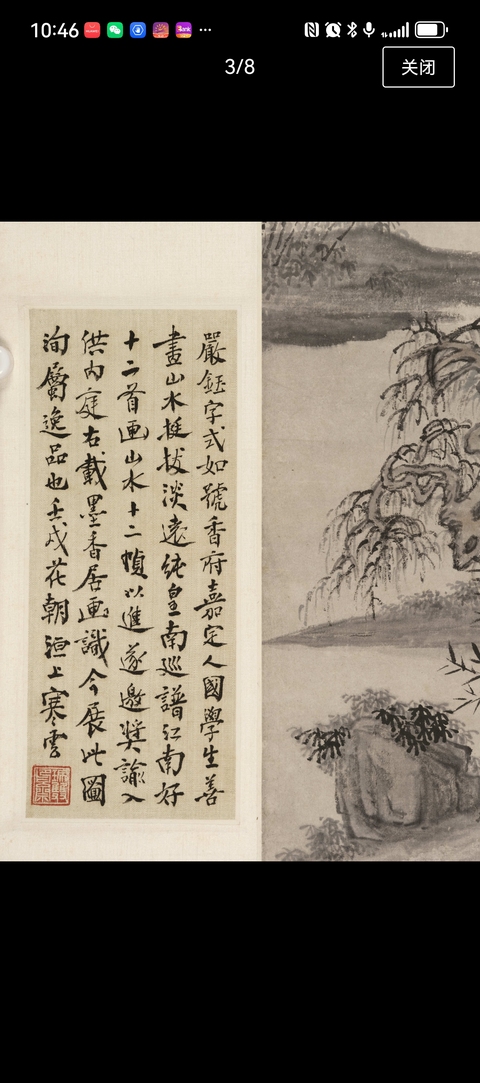 10:46
3/8
关闭
嚴鈺字式如號香府嘉定人國學生善
畫山水挺拔淡遠純皇南巡譜江南好
十二首画山水十二幀以進遂邀奬諭入
供内庭右載墨香居画識今展此圖
洵屬逸品也壬戌花朝洹上寒雲